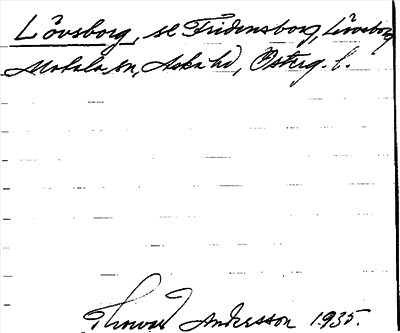 Lövsborg, se Fridensborg, Lövsborg
Motala sn, Aska hd, Österg. l.
Thorwald Andersson 1935.